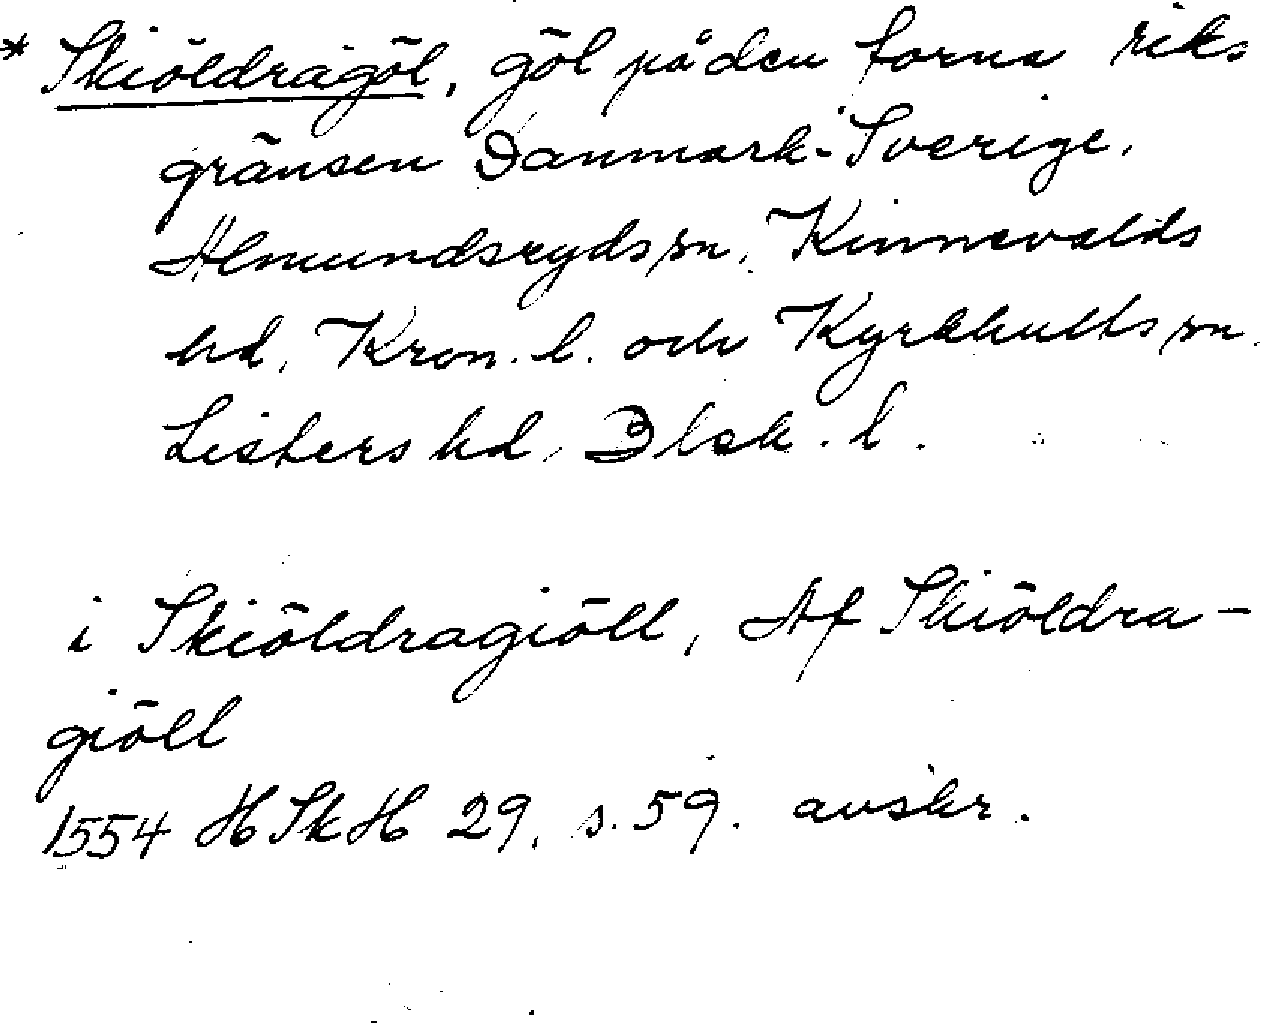 * Skiöldragöl, göl på den forna riks
gränsen Danmark-Sverige.
Almundsryds sn, Kinnevalds
hd, Kron. l. och Kyrkhults sn.
Listers hd, Blek. l.
i Skiöldragiöll, Af Skiöldra-
giöll
1554 HSkH 29, s. 59. avskr.